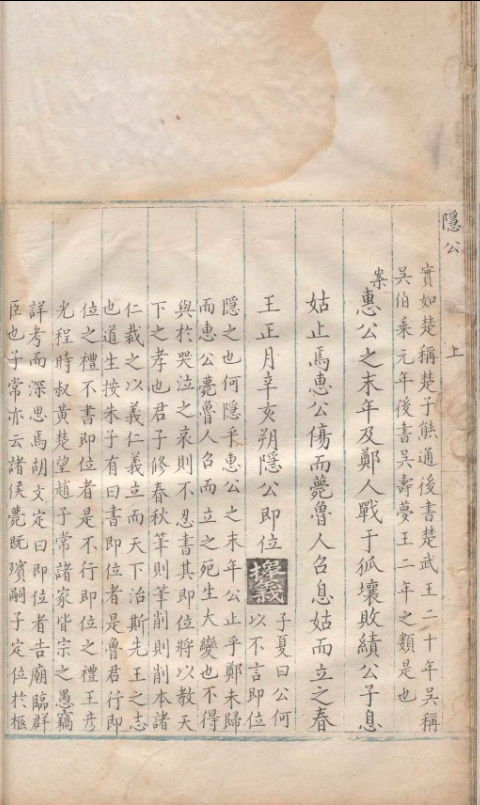 隱公
上
實如楚稱楚子熊通後書楚武王二十年吳稱
吳伯乘元年後書吳壽夢王二年之類是也
案
惠公之末年及鄭人戰于狐壤敗績公子息
姑止焉惠公傷而薨魯人召息姑而立之春
王正月辛亥朔隱公即位
擇義
子夏曰公何
以不言即位
隱之也何隱乎惠公之末年公止乎鄭未歸
而惠公薨魯人召而立之死生大變也不得
與於哭泣之哀則不忍書其即位將以教天
下之孝也君子修春秋筆則筆削則削本諸
仁裁之以義仁義立而天下治斯先王之志
也道生按朱子有曰書即位者是魯君行即
位之禮不書即位者是不行即位之禮王彥
光程時叔黃楚望趙子常諸家皆宗之愚竊
詳考而深思焉胡文定曰即位者告廟臨群
臣也子常亦云諸侯薨既殯嗣子定位於柩